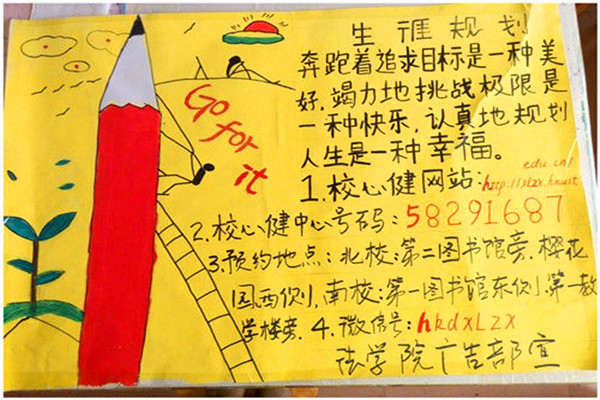 生涯规划
奔跑着追求目标是一种美
好,竭力地挑战极限是
一种快乐,认真地规划
人生是一种幸福。
Go for
it
edu.cn/
1.校心健网站:http://xlzx.hnust
2.校心健中心号码:58291687
3.预约地点:北校:第二图书馆旁.樱花
园西侧,南校:第一图书馆东侧.第一教
学楼旁.4.微信号:hkdxLzx
法学院广告部宣